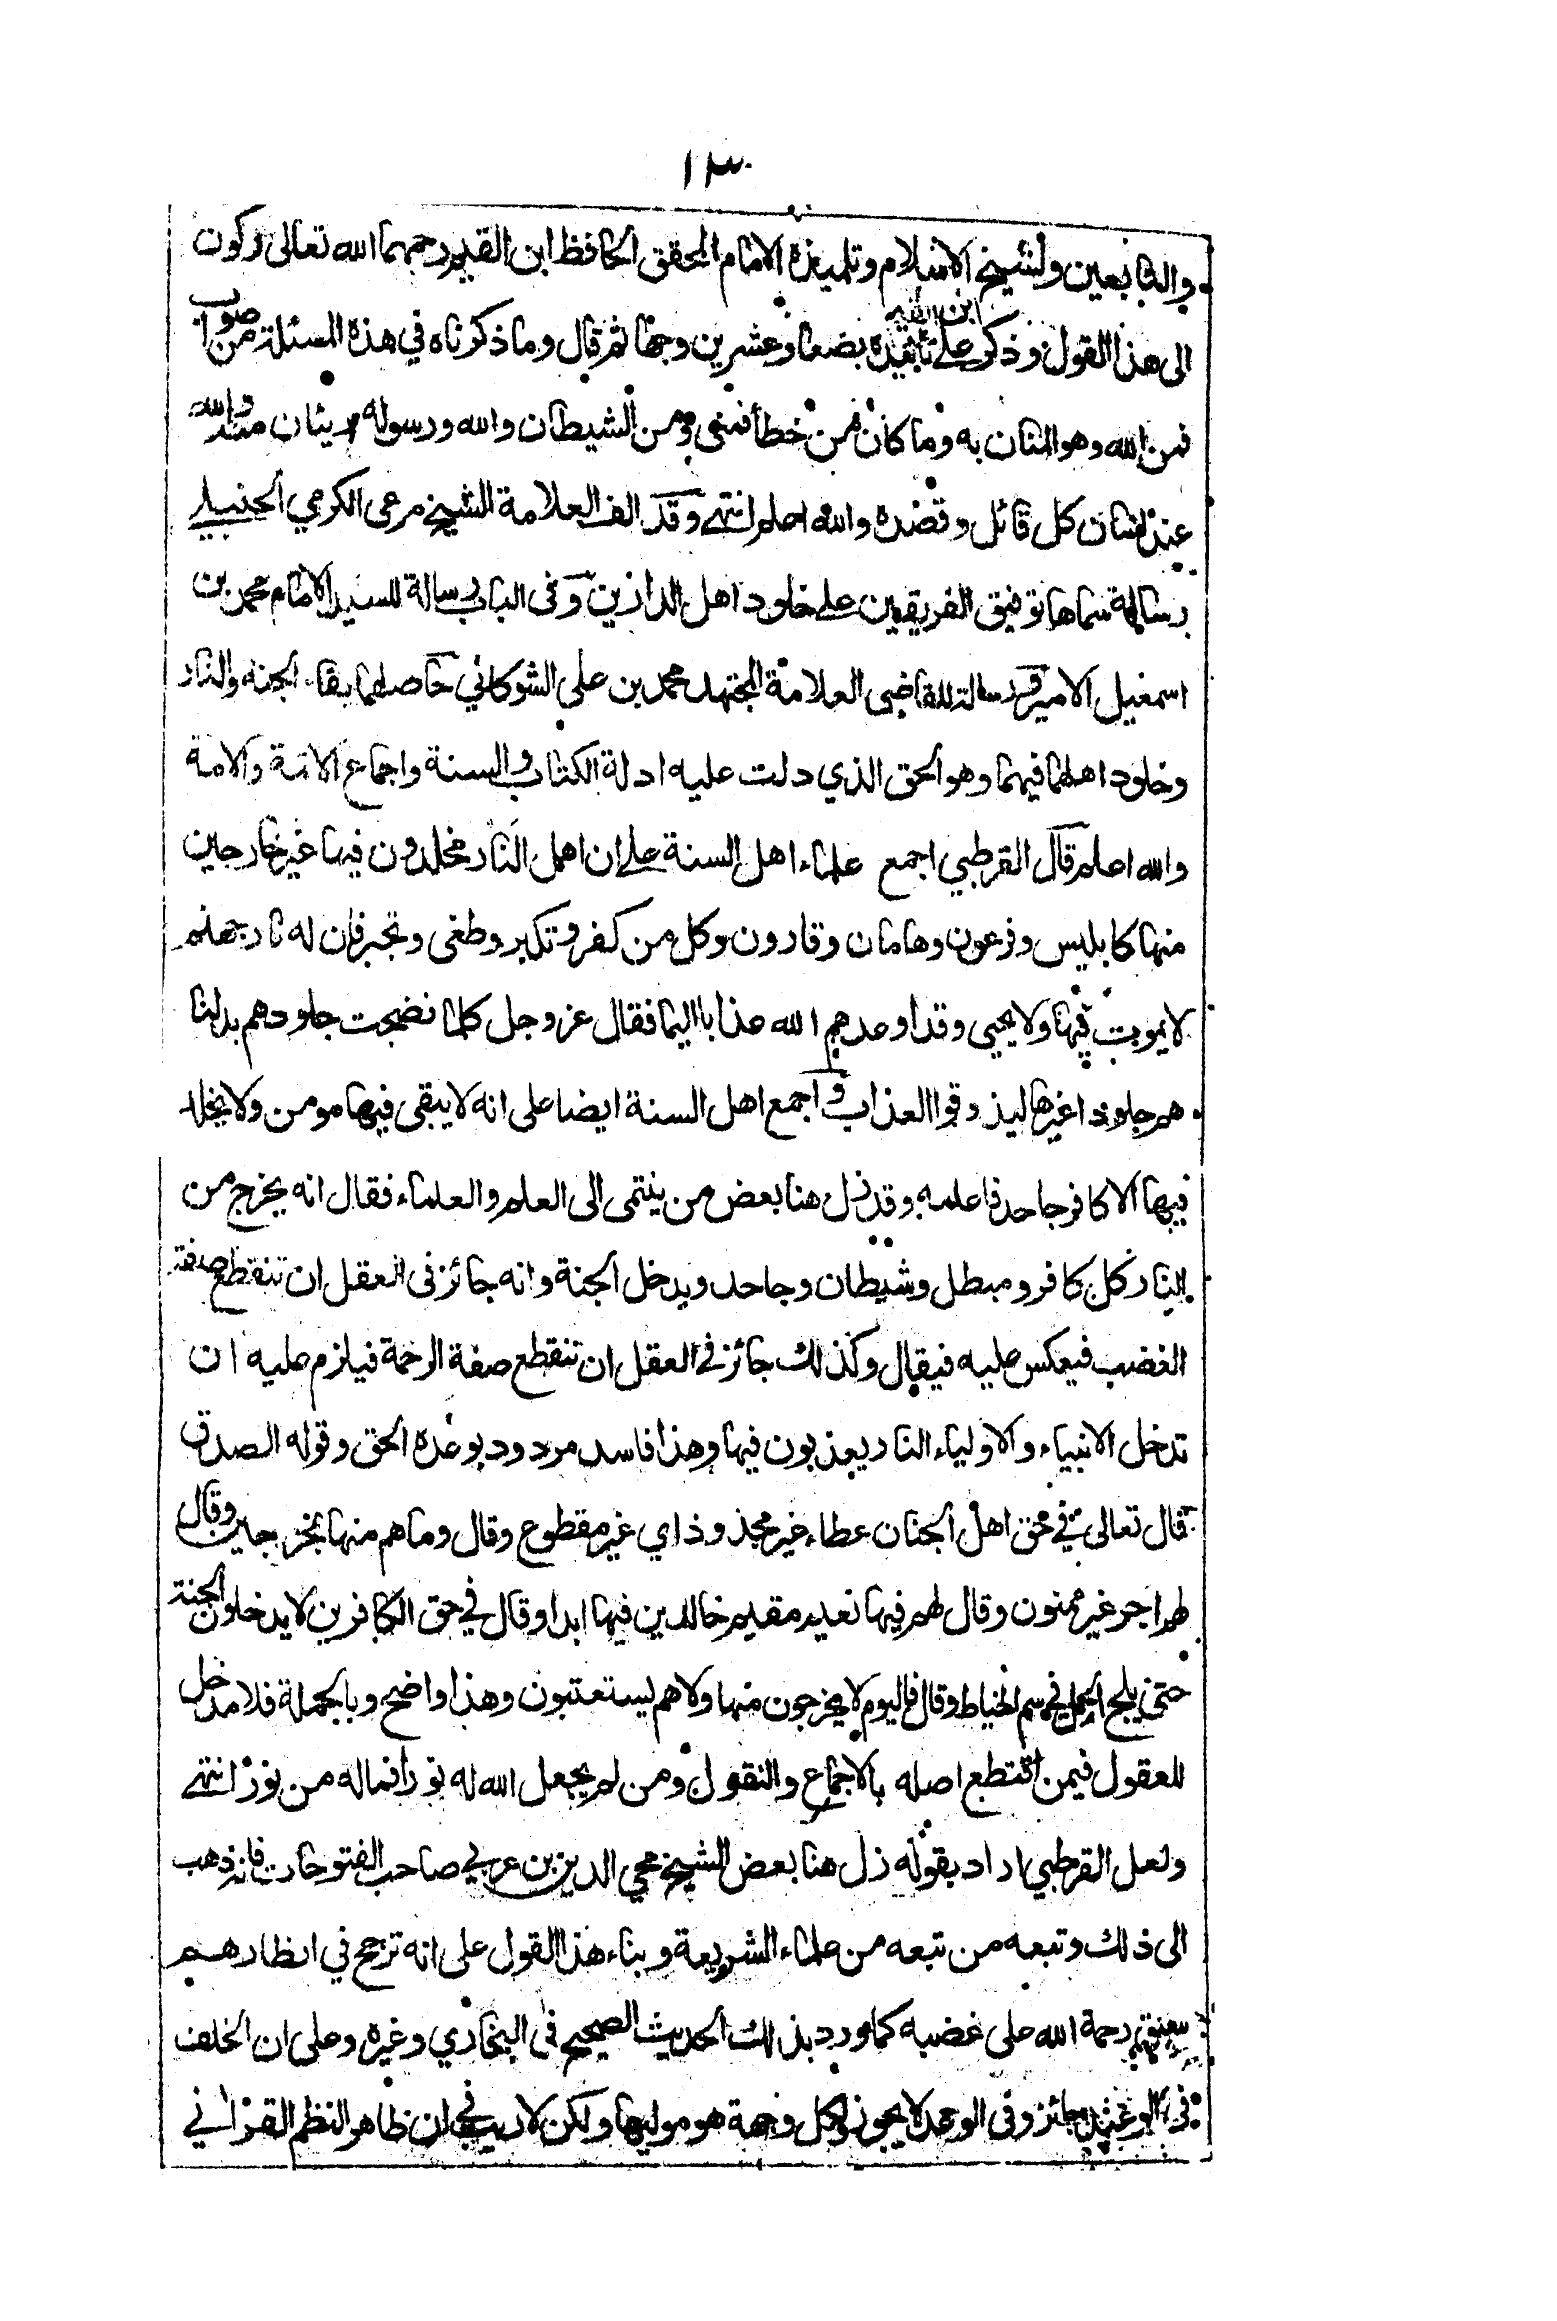 ١٣٠
والتابعين ولشيخ الاسلام وتلميذه الامام المحقق الحافظ ابن القيم رحمهما الله تعالى ركون
ابن القيم
الى هذا القول وذكر على تائيده بضعا وعشرين وجها ثم قال وما ذكرناه في هذه المسئلة من صواب
فمن الله وهو المنان به وما كان من خطأ فمنى ومن الشيطان والله ورسوله بريئان منه والله
عند لسان كل قائل وقصده والله اعلم انتهى وقد الف العلامة الشيخ مرعى الكرمي الحنبلي
رسالة سماها توفيق الفريقين على خلود اهل الدارين وفى الباب رسالة للسيد الامام محمد بن
اسمعيل الامير ورسالة للقاضى العلامة المجتهد محمد بن على الشوكاني حاصلهما بقاء الجنة والنار
وخلود اهلهما فيهما وهو الحق الذي دلت عليه ادلة الكتاب والسنة واجماع الائمة والامة
والله اعلم قال القرطبي اجمع علماء اهل السنة على ان اهل النار مخلدون فيها غير خارجين
منها كابليس وفرعون وهامان وقارون وكل من كفر وتكبر وطغى وتجبر فان له نار جهنم
لا يموت فيها ولا يحيى وقد اوعدهم الله عذابا اليما فقال عز وجل كلما نضجت جلودهم بدلنا
هم جلودا غيرها ليذوقوا العذاب واجمع اهل السنة ايضا على انه لا يبقى فيها مومن ولا يخلد
فيها الا كافر جاحد فاعلمه وقد زل هنا بعض من ينتمى الى العلم والعلماء فقال انه يخرج من
النار كل كافر ومبطل وشيطان وجاحد ويدخل الجنة وانه جائز فى العقل ان تنقطع صفة
الغضب فيعكس عليه فيقال وكذلك جائز في العقل ان تنقطع صفة الرحمة فيلزم عليه ان
تدخل الانبياء والاولياء النار يعذبون فيها وهذا فاسد مردود بوعده الحق وقوله الصدق
قال تعالى في حق اهل الجنان عطاء غير مجذوذ اي غير مقطوع وقال وما هم منها بمخرجين وقال
لهم اجر غير ممنون وقال لهم فيها نعيم مقيم خالدين فيها ابدا وقال في حق الكافرين لا يدخلون الجنة
حتى يلج الجمل في سم الخياط وقال فاليوم لا يخرجون منها ولا هم يستعتبون وهذا واضح وبالجملة فلا مدخل
للعقول فيمن اقتطع اصله بالاجماع والنقول ومن لم يجعل الله له نورا فماله من نور انتهى
ولعل القرطبي اراد بقوله زل هنا بعض الشيخ محي الدين بن عربي صاحب الفتوحات فانه ذهب
الى ذلك وتبعه من تبعه من علماء الشريعة وبناء هذا القول على انه ترجح في انظارهم
رحمة الله على غضبه كما ورد بذلك الحديث الصحيح فى البخاري وغيره وعلى ان الخلف
فى الوعيد جائز وفى الوعد لا يجوز ولكل وجهة هو موليها ولكن لا ريب فى ان ظاهر النظم القراني